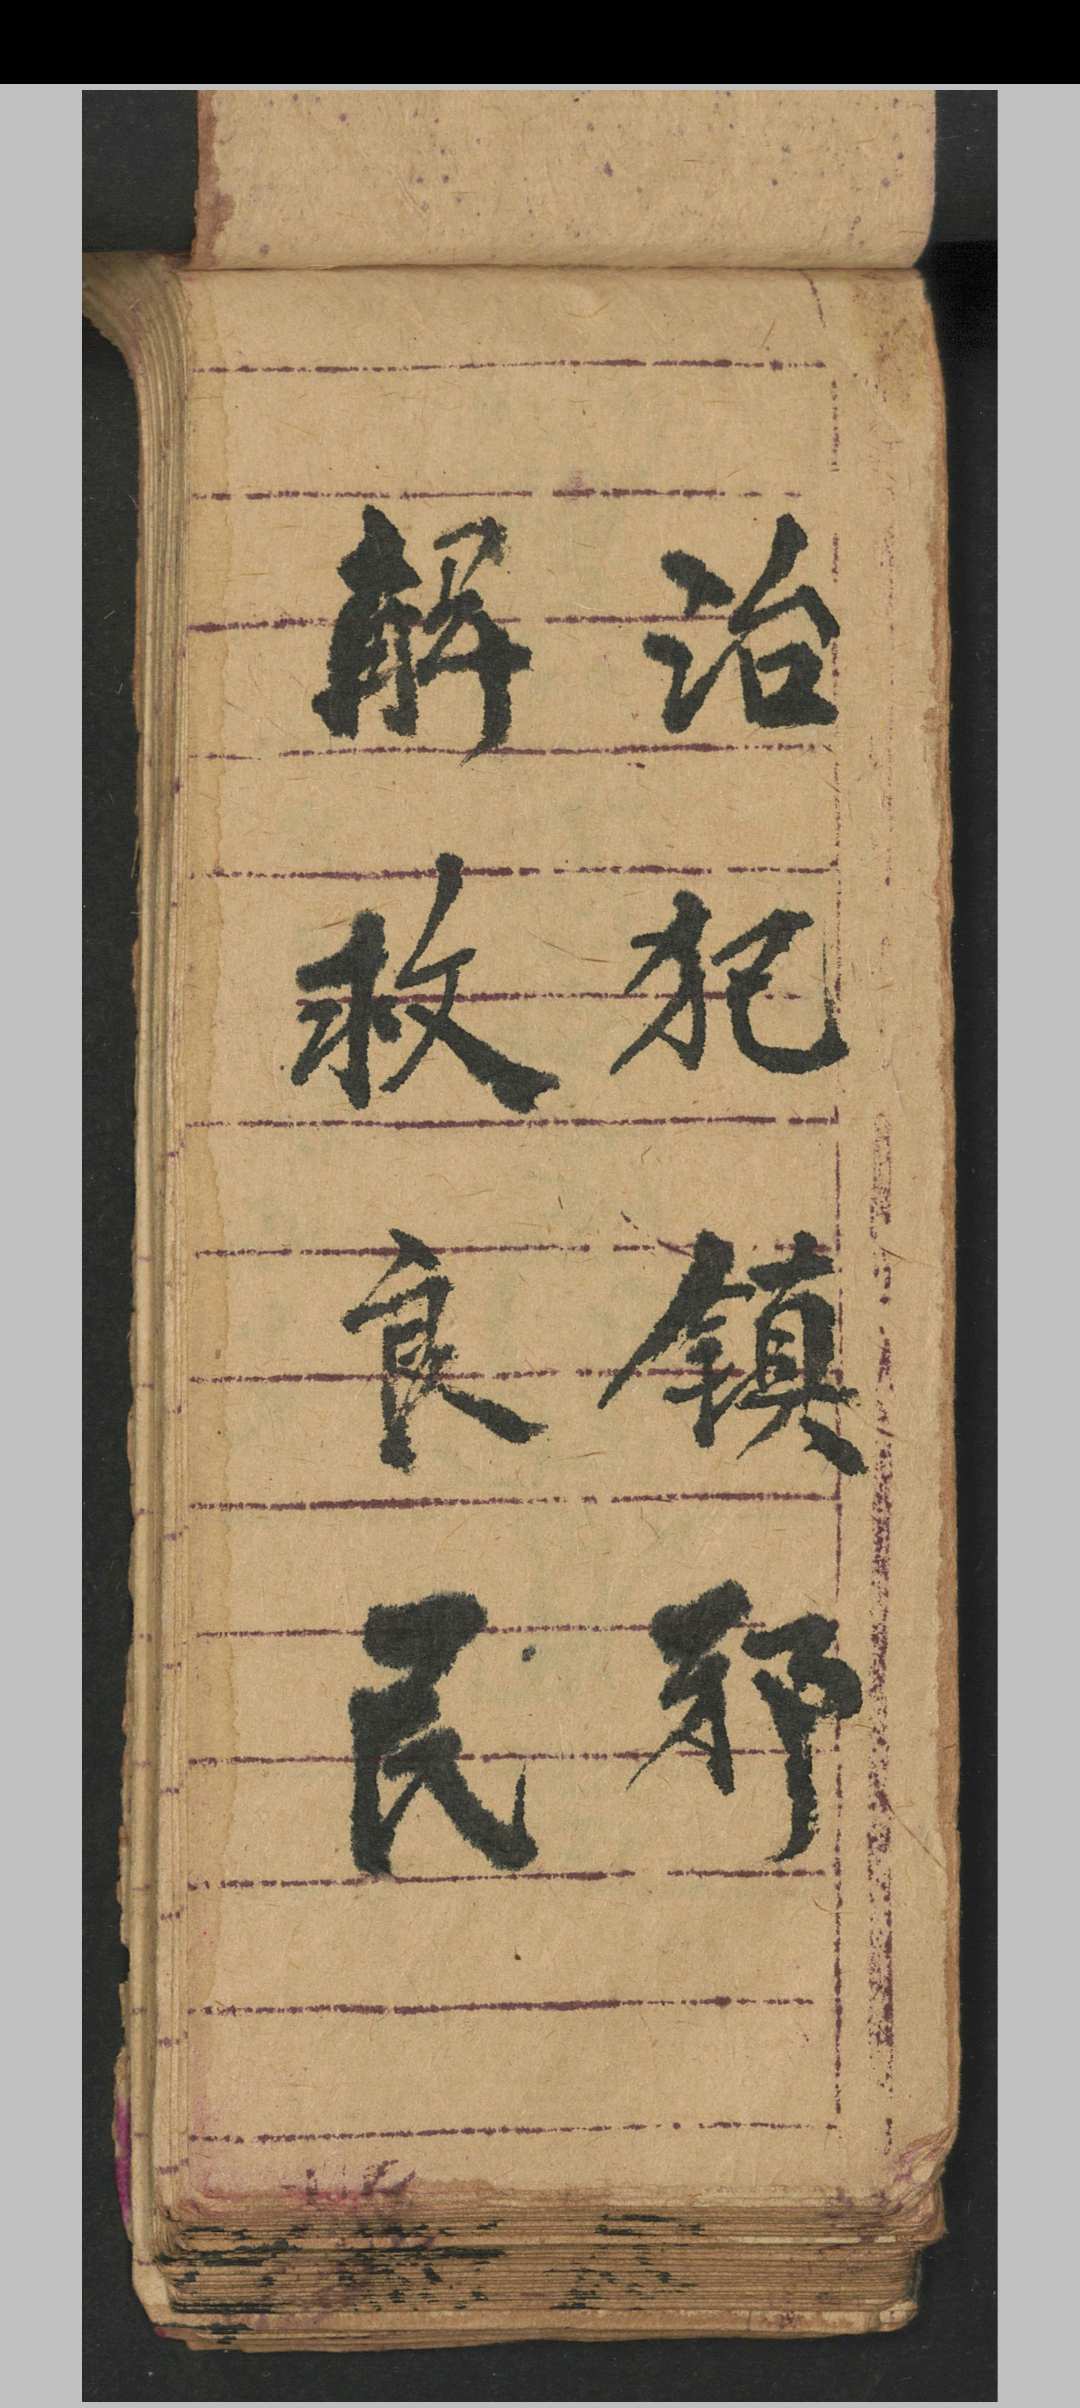 治犯镇邪
解救良民